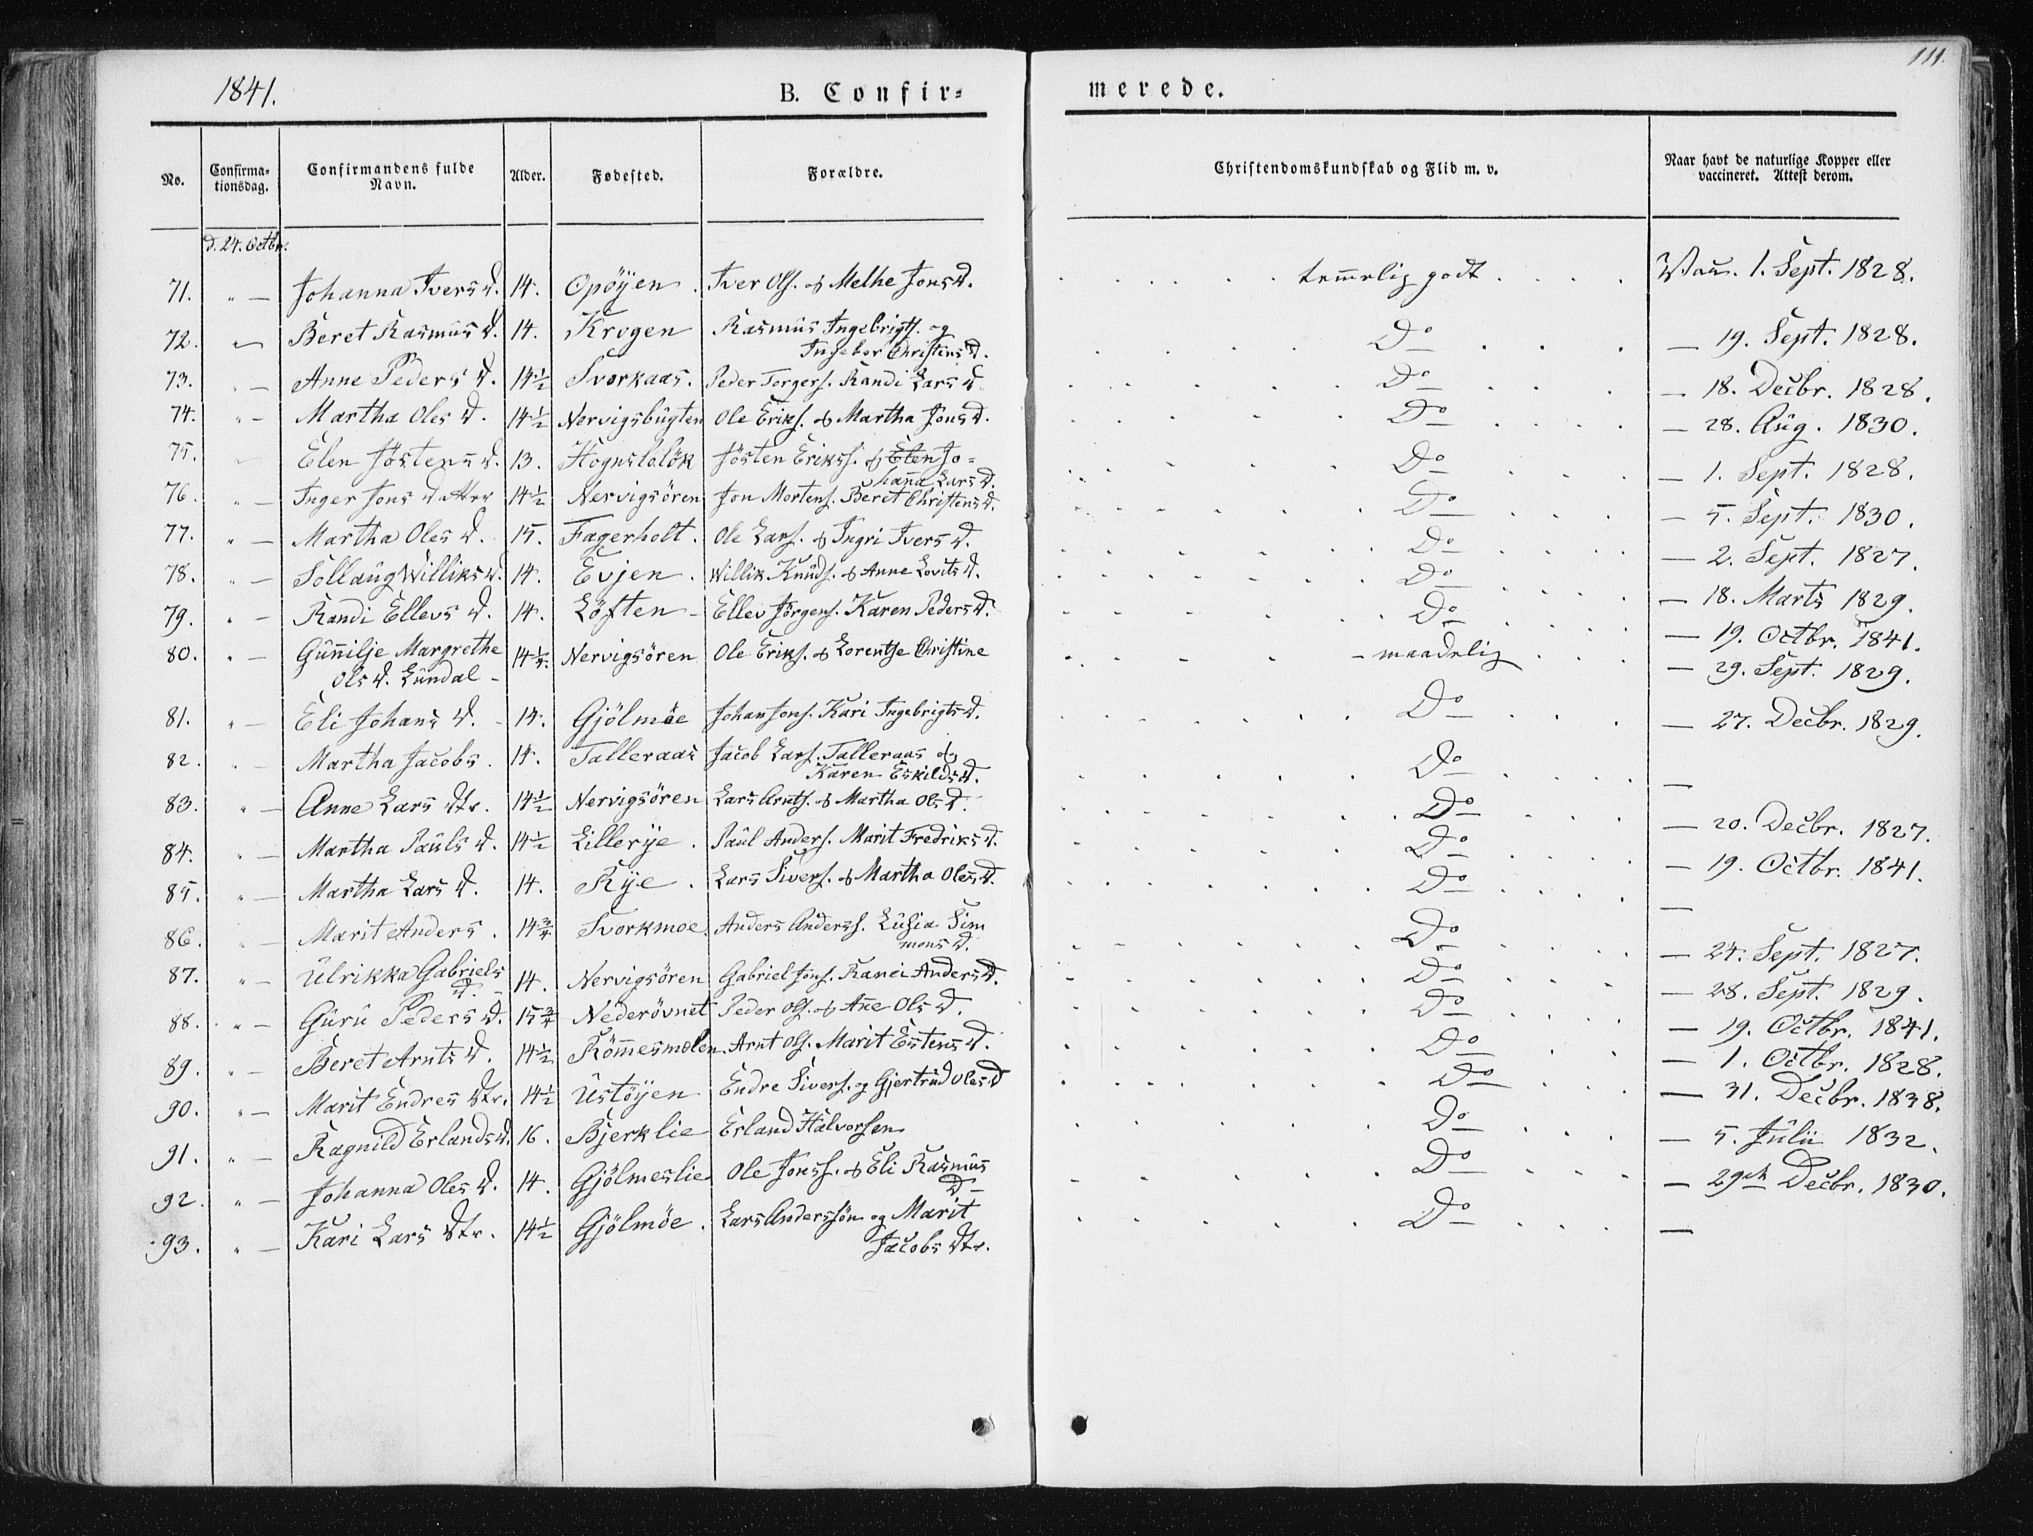 1841.
B. Confir-
merede.
111.
No.
Confirma-
tionsdag.
Confirmandens fulde
Navn.
Alder.
Fødested.
Forældre.
Christendomskundskab og Flid m. v.
Naar havt de naturlige Kopper eller
vaccineret. Attest derom.
d. 24. Octbr.
71. " — Johanna Ivers D. 14. Opöyen . Iver Ols. & Melhe Jons D. temelig godt Vac. 1. Sept. 1828.
72. " — Beret Rasmus D. 14. Krogen Rasmus Ingebrigts. og Do — 19. Sept. 1828.
Ingebor Christens D.
73. " — Anne Peders D. 14½ Svorkaas. Peder Torgers. Randi Lars D. Do — 18. Decbr. 1828.
74. " — Martha Oles D. 14½ Nervigsbugten Ole Eriks. & Martha Jons D. Do — 28. Aug. 1830.
75. " — Elen Jöstens D. 13. Hognsloløk Jösten Erikss. & Elen Jo= Do — 1. Sept. 1828.
hana Lars D.
76. " — Inger Jons Datter 14½ Nervigsören Jon Mortens. Beret Christens D. Do — 5. Sept. 1830.
77. " — Martha Oles D. 15. Fagerholt. Ole Lars. & Ingri Ivers D. Do — 2. Sept. 1827.
78. " — Sollaug Williks D. 14. Evjen . Willik Knuds. & Anne Lovits D. Do — 18. Marts 1829.
79. " — Randi Ellevs D. 14. Löften — Ellev Jörgens. Karen Peders D. Do — 19. Octbr. 1841.
80. " — Gunilje Margrethe 14¼. Nervigsören Ole Eriks. & Lorentse Christine — maadelig — 29. Sept. 1829.
Ols D. Lundal —
81. " — Eli Johans D. 14. Gjölmöe Johan Jons. Kari Ingebrigts D. Do — 27. Decbr. 1829.
82. " — Martha Jacobs . 14. Talleraas Jacob Lars. Talleraas og Do —
Karen Eskilds D.
83. " — Anne Lars Dtr. 14½ Nervigsören Lars Arnts. & Martha Ols D. Do — 20. Decbr. 1827.
84. " — Martha Pauls D. 14½ Lillerye . Paul Anders. Marit Fredriks D. Do — 19. Octbr. 1841.
85. " — Martha Lars D. 14. Rye . Lars Sivers. & Martha Oles D. Do —
86. " — Marit Anders . 14¾ Svorkmoe. Anders Anderss. Lusia Sim Do — 24. Sept. 1827.
mons D.
87. " — Ulrikka Gabriels 14. Nervigsören Gabriel Jons. Ranei Anders D. Do — 28. Sept. 1829.
D. —
88. " — Guru Peders D. 15¾ Nederövnet Peder Ols. & Ane Ols D. Do — 19. Octbr. 1841.
89. " — Beret Arnts D. 14½ Römmesmoelen Arnt Ols. Marit Estens D. Do — 1. Octbr. 1828.
90. " — Marit Endres Dtr. 14½ Ustöyen Endre Sivers. og Gjertrud Oles D Do — 31. Decbr. 1838.
91. " — Ragnild Erlands D. 16. Bjerklie Erland Halvorsen Do — 5. Julii 1832.
92. " — Johanna Oles D. 14. Gjölmeslie Ole Jonss. & Eli Rasmus Do — 29de Decbr. 1830.
D —
93. " — Kari Lars Dtr. 14½ Gjölmöe . Lars Anderssön og Marit Do —
Jacobs Dtr.